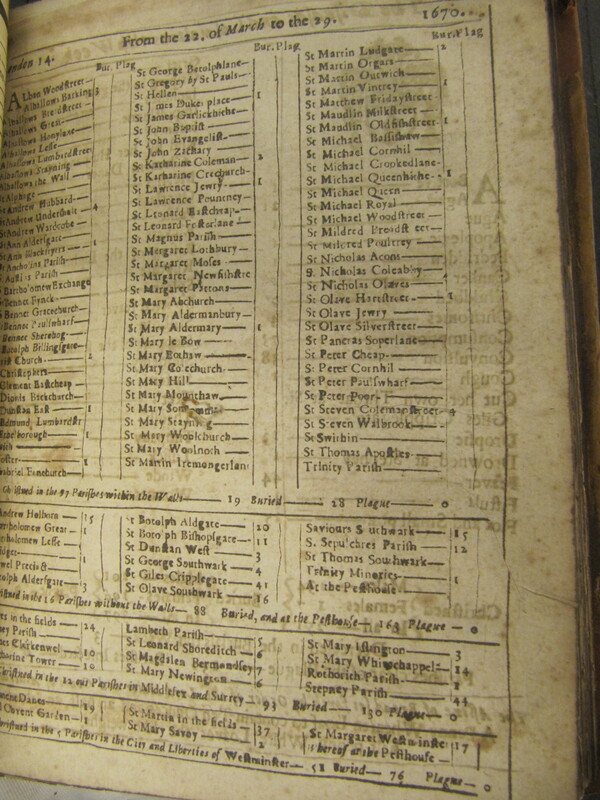 London 14. From the 22. of March to the 29. 1670.
Bur. Plag
Alban Woodstreet
Alhallows Barking 3
Alhallows Breadstreet
Alhallows Great
Alhallows Honylane
Alhallows Lesse
Alhallows Lumbardstreet
Alhallows Stayning
Alhallows the Wall
Alphage
St Andrew Hubbard
St Andrew Undershaft 4
St Andrew Wardrobe
St Ann Aldersgate 1
St Ann Blackfryers
St Antholins Parish
St Austins Parish
St Bartholomew Exchange
St Bennet Fynck
St Bennet Gracechurch
St Bennet Paulswharf
St Bennet Sherehog
St Botolph Billingsgate
Christ Church 2
St Christophers
St Clement Eastcheap
St Dionis Backchurch
St Dunstan East 1
St Edmund Lumbardstr
St Ethelborough 1
St Gabriel Fanchurch
Bur. Plag
St George Botolphlane
St Gregory by St Pauls
St Hellen 1
St James Dukes place
St James Garlickhithe
St John Baptist
St John Evangelist
St John Zachary
St Katharine Coleman 2
St Katharine Creechurch
St Lawrence Jewry 1
St Lawrence Pountney
St Leonard Eastcheap
St Leonard Fosterlane
St Magnus Parish
St Margaret Lothbury
St Margaret Moses
St Margaret Newfishstre
St Margaret Pattons
St Mary Abchurch
St Mary Aldermanbury
St Mary Aldermary 1
St Mary le Bow
St Mary Bothaw
St Mary Colechurch
St Mary Hill
St Mary Mounthaw
St Mary Som
St Mary Stayning
St Mary Woolchurch
St Mary Woolnoth
St Martin Iremongerlan
Bur. Plag
St Martin Ludgate 2
St Martin Orgars
St Martin Outwich
St Martin Vintrey 1
St Matthew Fridaystreet
St Maudlin Milkstreet
St Maudlin Oldfishstreet 1
St Michael Bassishaw
St Michael Cornhil
St Michael Crookedlane
St Michael Queenhithe 1
St Michael Queen
St Michael Royal
St Michael Woodstreet
St Mildred Breadstreet
St Mildred Poultrey
St Nicholas Acons
S. Nicholas Coleabby
St Nicholas Olaves
St Olave Hartstreet 1
St Olave Jewry
St Olave Silverstreet
St Pancras Soperlane
St Peter Cheap
St Peter Cornhil
St Peter Paulswharf
St Peter Poor
St Steven Colemanstreet 4
St Steven Walbrook
St Swithin
St Thomas Apostles
Trinity Parish
Christned in the 97 Parishes within the Walls 19 Buried 28 Plague 0
St Andrew Holborn 15
St Bartholomew Great 1
St Bartholomew Lesse
Bridget
Bridewel Precinct
St Botolph Aldersgate 3
St Botolph Aldgate 20
St Botolph Bishopsgate 11
St Dunstan West 3
St George Southwark 4
St Giles Cripplegate 41
St Olave Southwark 16
Saviours Southwark 15
S. Sepulchres Parish 12
St Thomas Southwark
Trinity Minories 1
At the Pesthouse
Christned in the 16 Parishes without the Walls 88 Buried, and at the Pesthouse 163 Plague 0
Giles in the fields 24
Hackney Parish
James Clarkenwel 10
Katharine Tower 10
Lambeth Parish 5
St Leonard Shoreditch 6
St Magdalen Bermondsey 7
St Mary Newington 6
St Mary Islington 3
St Mary Whitechappel 14
Rothorith Parish
Stepney Parish 44
Christned in the 12 out Parishes in Middlesex and Surrey 93 Buried 130 Plague 0
Clement Danes 19
Paul Covent Garden 1
St Martin in the fields 37
St Mary Savoy 2
St Margaret Westminster 17
thereof at the Pesthouse
Christned in the 5 Parishes in the City and Liberties of Westminster 52 Buried 76 Plague 0